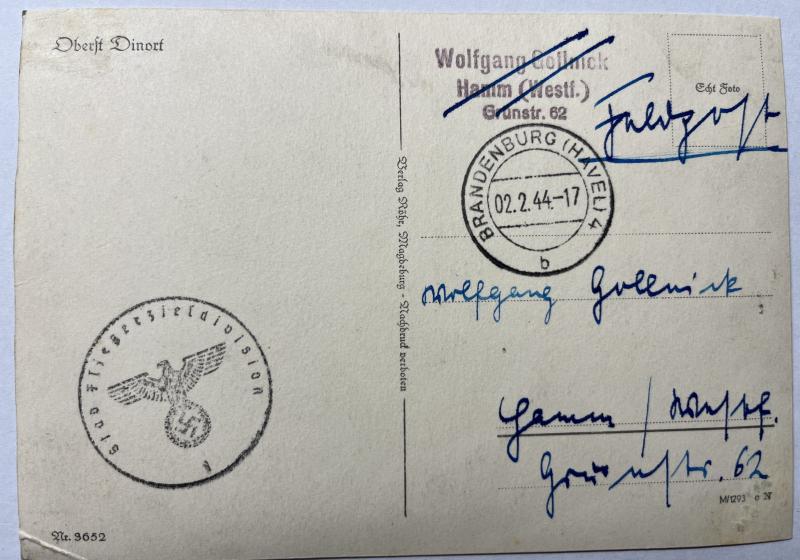 Oberst Dinort
Wolfgang Gollnick
Hamm (Westf.)
Grünstr. 62
Echt Foto
Feldpost
BRANDENBURG (HAVEL) 4
02.2.44.-17
b
Verlag Röhr, Magdeburg - Nachdruck verboten
Wolfgang Gollnick
Hamm / Westf.
Grünstr. 62
Stab Fliegerzieldivision
Nr. 3652
M/1293